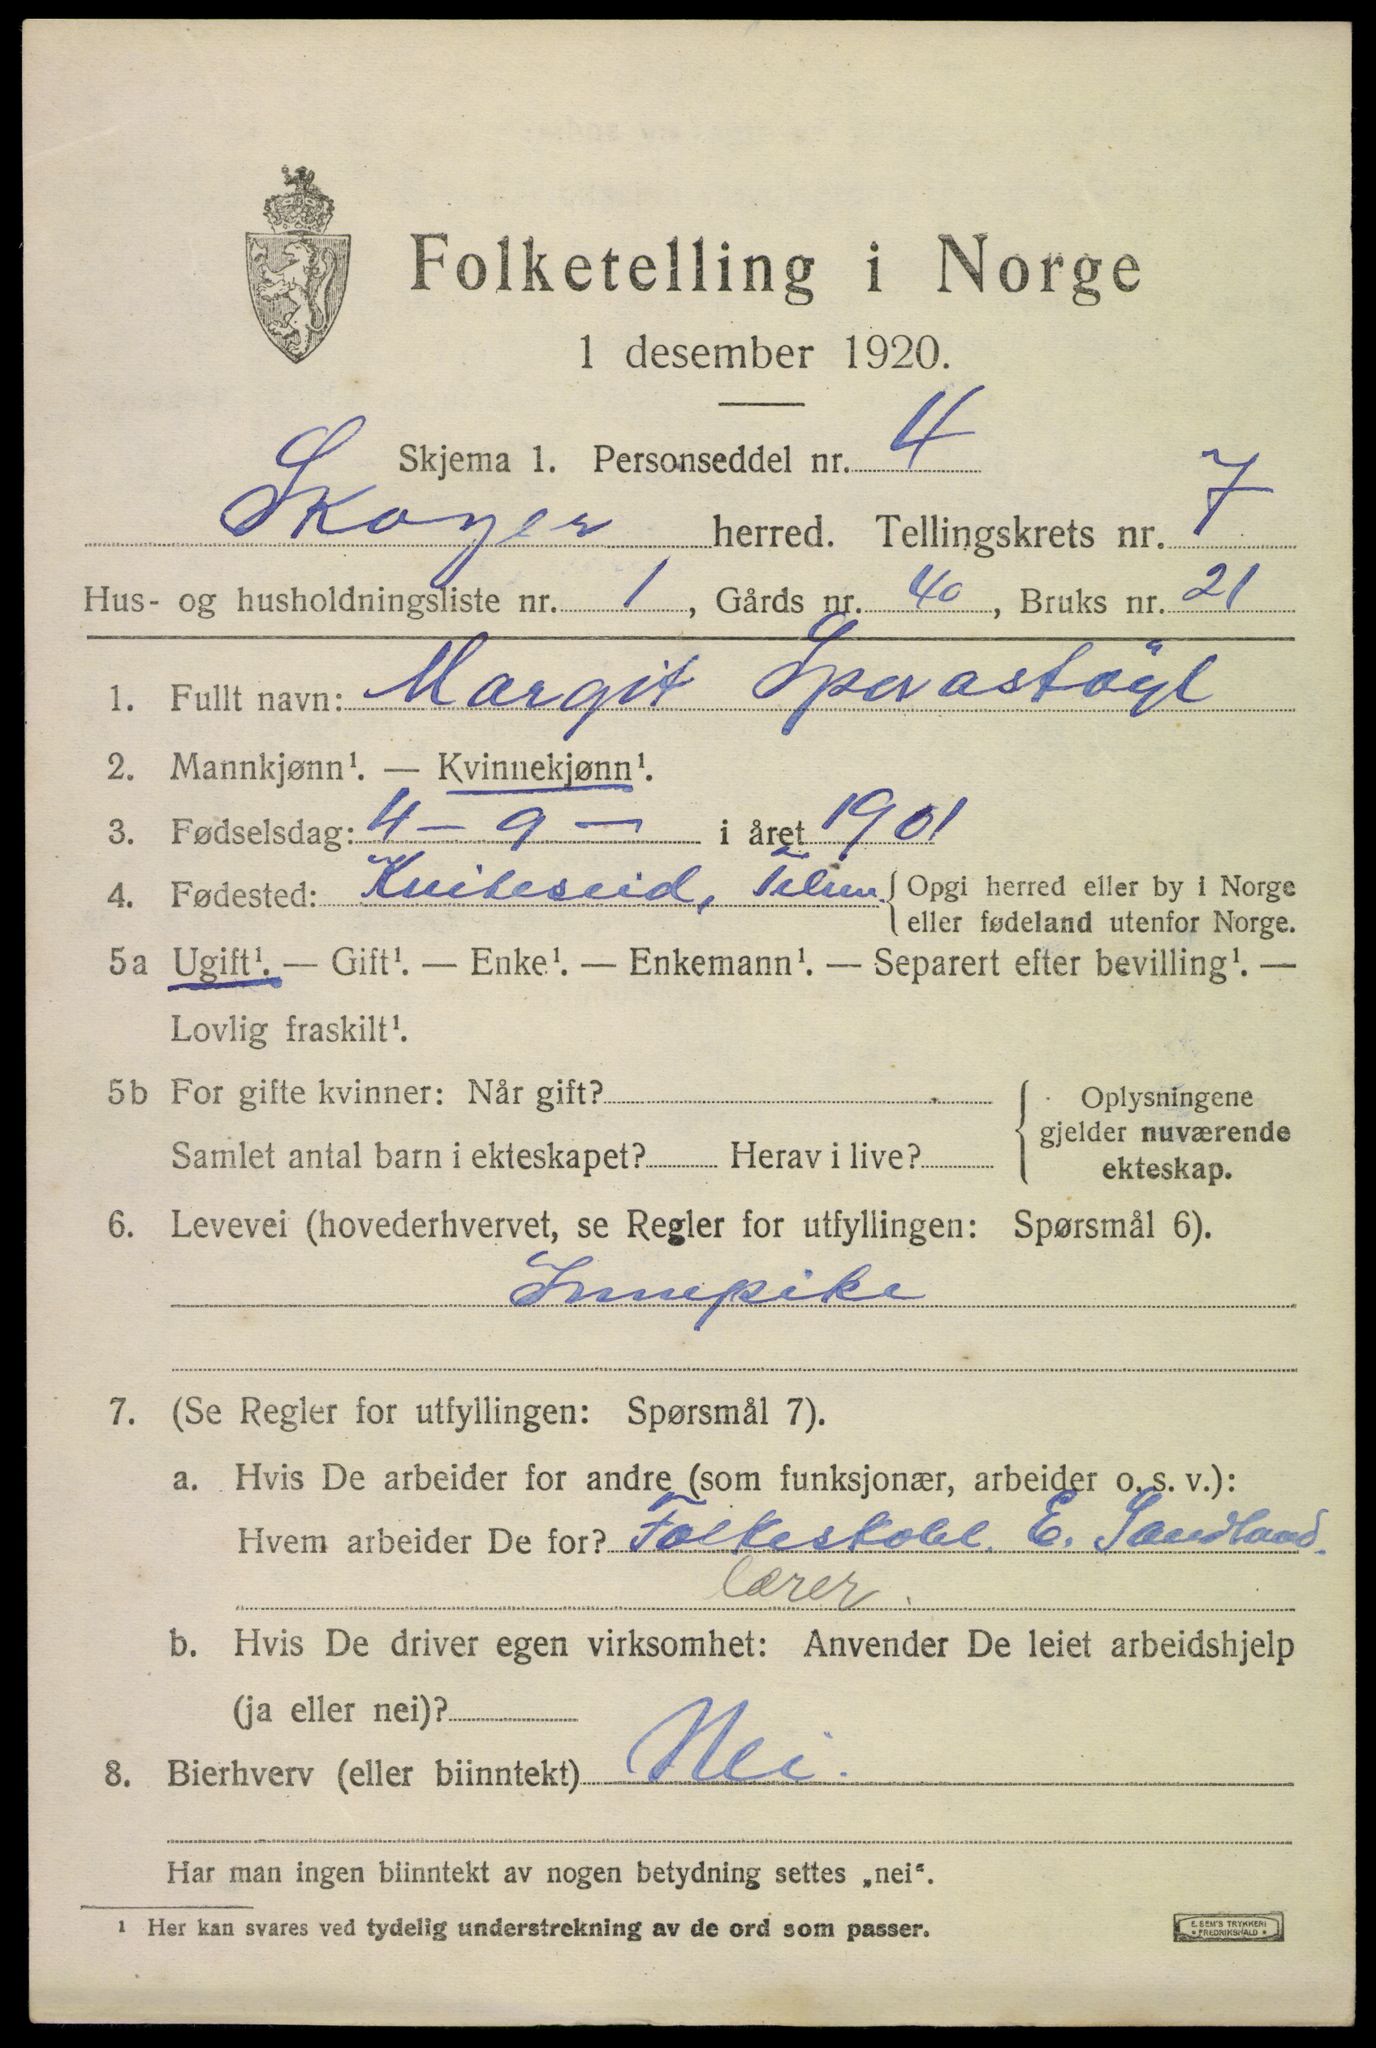 Folketelling i Norge
1 desember 1920.
Skjema 1. Personseddel nr. 4
Skoger herred. Tellingskrets nr. 7
Hus- og husholdningsliste nr. 1, Gårds nr. 40, Bruks nr. 21
1. Fullt navn: Margit
2. Mannkjønn¹. — Kvinnekjønn¹.
3. Fødselsdag: 4 – 9 – i året 1901
4. Fødested: Kviteseid, Telem. Opgi herred eller by i Norge
eller fødeland utenfor Norge.
5a Ugift¹. — Gift¹. — Enke¹. — Enkemann¹. — Separert efter bevilling¹. —
Lovlig fraskilt¹.
5b For gifte kvinner: Når gift? Oplysningene
gjelder nuværende
Samlet antal barn i ekteskapet? Herav i live? ekteskap.
6. Levevei (hovederhvervet, se Regler for utfyllingen: Spørsmål 6).
Innepike
7. (Se Regler for utfyllingen: Spørsmål 7).
a. Hvis De arbeider for andre (som funksjonær, arbeider o. s. v.):
Hvem arbeider De for? Folkeskolel. E. Sandland.
lærer.
b. Hvis De driver egen virksomhet: Anvender De leiet arbeidshjelp
(ja eller nei)?
8. Bierhverv (eller biinntekt) Nei.
Har man ingen biinntekt av nogen betydning settes „nei“.
¹ Her kan svares ved tydelig understrekning av de ord som passer.
E. SEM'S TRYKKERI
FREDRIKSHALD